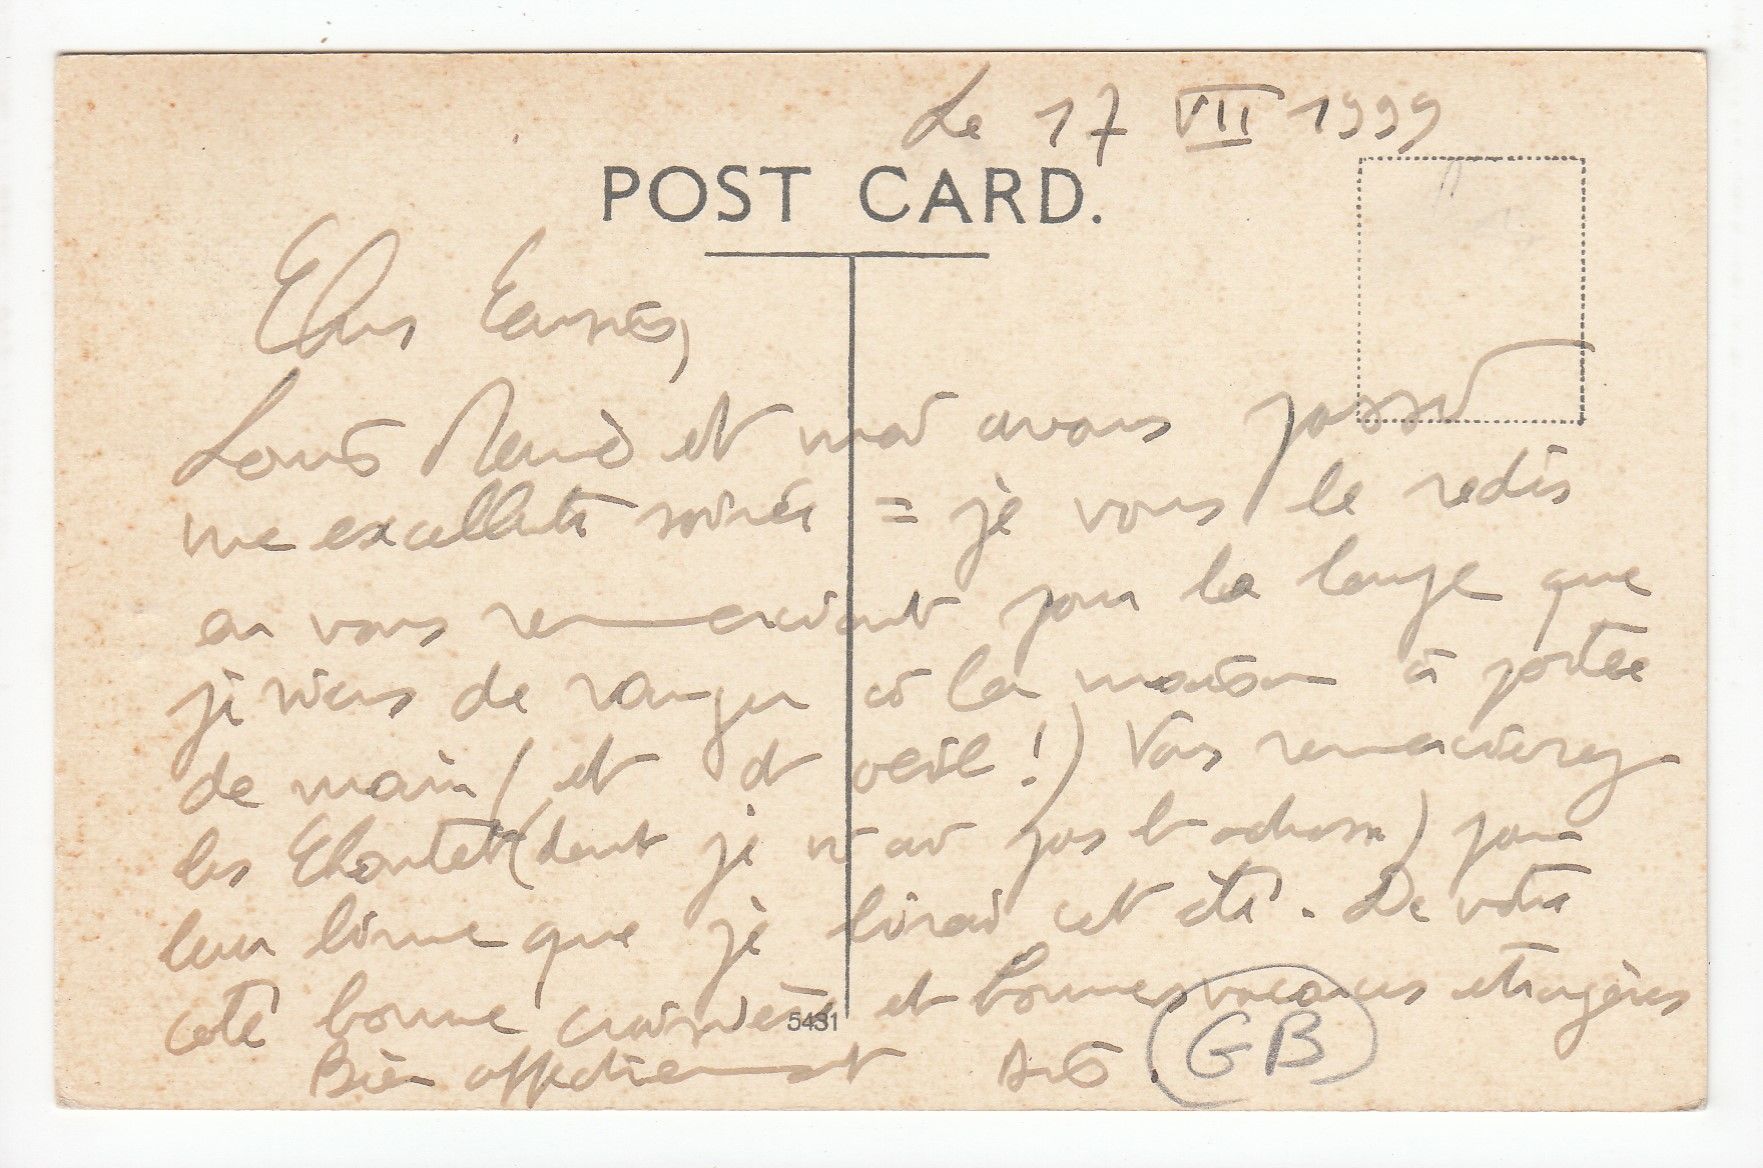 Le 17 VII 1999
POST CARD.
Chers
Louis René et moi avons passé
une excellente soirée = je vous le redis
en vous remerciant pour la que
je viens de ranger à la maison à portée
de main (et d'oeil!) Vous remercierez
les (dont je n'ai pas l'adresse) pour
leur livre que je lirai cet été. De votre
coté bonne croisière et bonnes vacances étrangères
5431
Bien affectueusement
GB